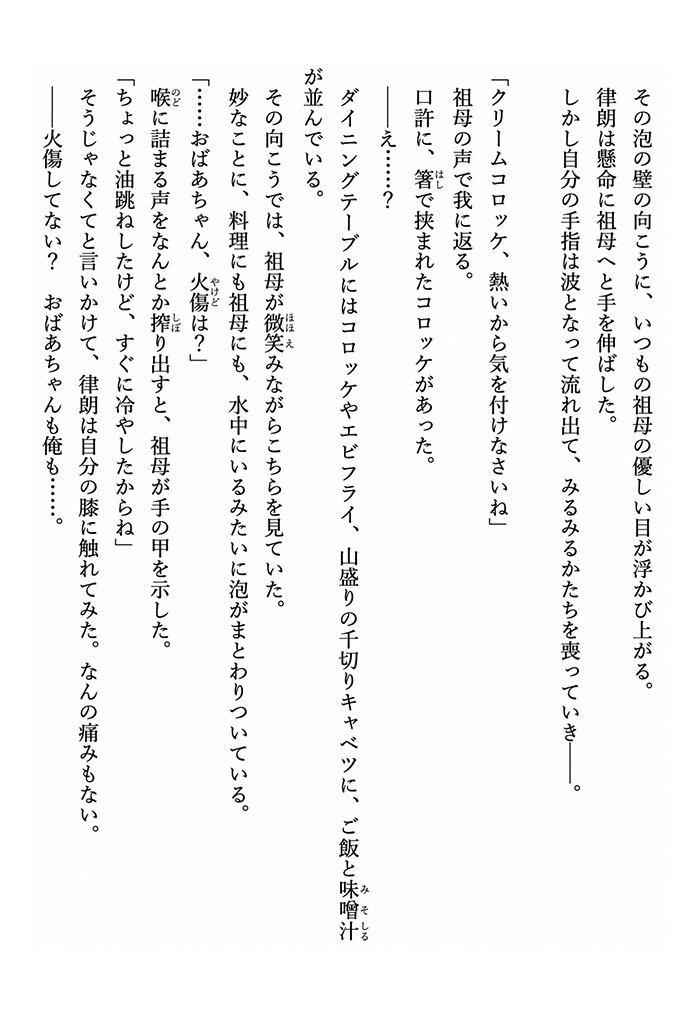 その泡の壁の向こうに、いつもの祖母の優しい目が浮かび上がる。
律朗は懸命に祖母へと手を伸ばした。
しかし自分の手指は波となって流れ出て、みるみるかたちを喪っていき――。
「クリームコロッケ、熱いから気を付けなさいね」
祖母の声で我に返る。
口許に、箸で挟まれたコロッケがあった。
――え……？
ダイニングテーブルにはコロッケやエビフライ、山盛りの千切りキャベツに、ご飯と味噌汁
が並んでいる。
その向こうでは、祖母が微笑みながらこちらを見ていた。
妙なことに、料理にも祖母にも、水中にいるみたいに泡がまとわりついている。
「……おばあちゃん、火傷は？」
喉に詰まる声をなんとか搾り出すと、祖母が手の甲を示した。
「ちょっと油跳ねしたけど、すぐに冷やしたからね」
そうじゃなくてと言いかけて、律朗は自分の膝に触れてみた。なんの痛みもない。
――火傷してない？　おばあちゃんも俺も……。